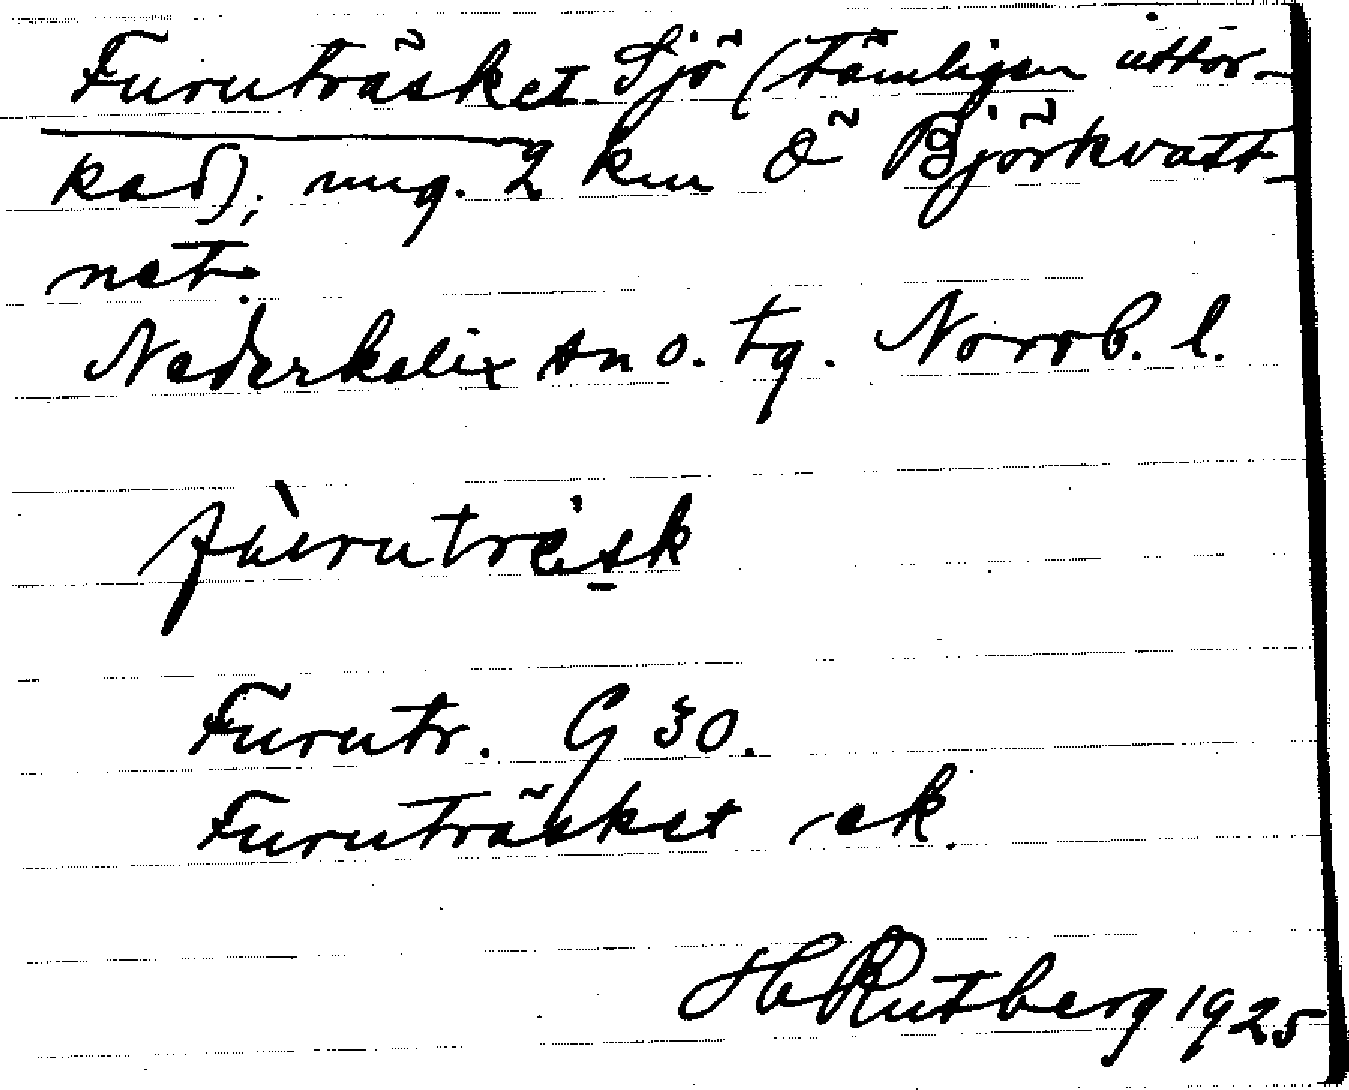 Furuträsket Sjö (tämligen uttor-
kad); ung. 2 km Ö Björkvatt-
net.
Nederkalix sn o. tg. Norrb. l.
fùruträsk
Furutr. G 30.
Furuträsket ek.
H Rutberg 1925